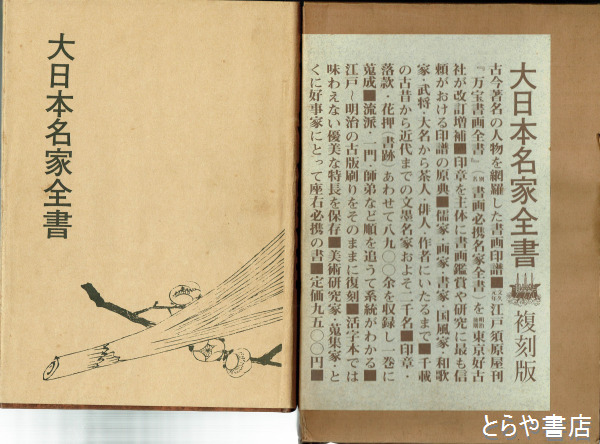 大日本名家全書
大日本名家全書 複刻版
古今著名の人物を網羅した書画印譜■文久元年江戸須原屋刊
『万宝書画全書』（別名書画必携名家全書）を明治後期東京好古
社が改訂増補■印章を主体に書画鑑賞や研究に最も信
頼がおける印譜の原典■儒家・画家・書家・国風家・和歌
家・武将・大名から茶人・俳人・作者にいたるまで■千載
の古昔から近代までの文墨名家およそ二千名■印章・
落款・花押（書跡）あわせて八九〇〇余を収録し一巻に
蒐成■流派・一門・師弟など順を追うて系統がわかる■
江戸〜明治の古版刷りをそのままに復刻■活字本では
味わえない優美な特長を保存■美術研究家・蒐集家・と
くに好事家にとって座石必携の書■定価九五〇〇円■
とらや書店